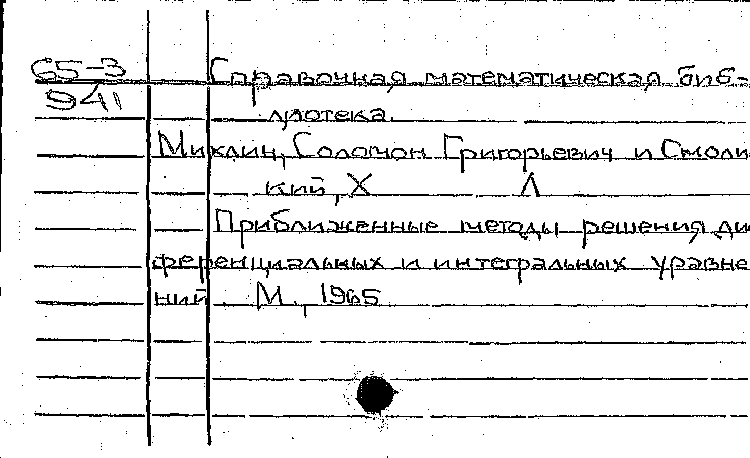 65-3
941
Справочная математическая биб-
лиотека.
Михлин, Соломон Григорьевич и Смоли
кий, Х Л
Приближенные методы решения ди
ференциальных и интегральных уравне
ний. М., 1965